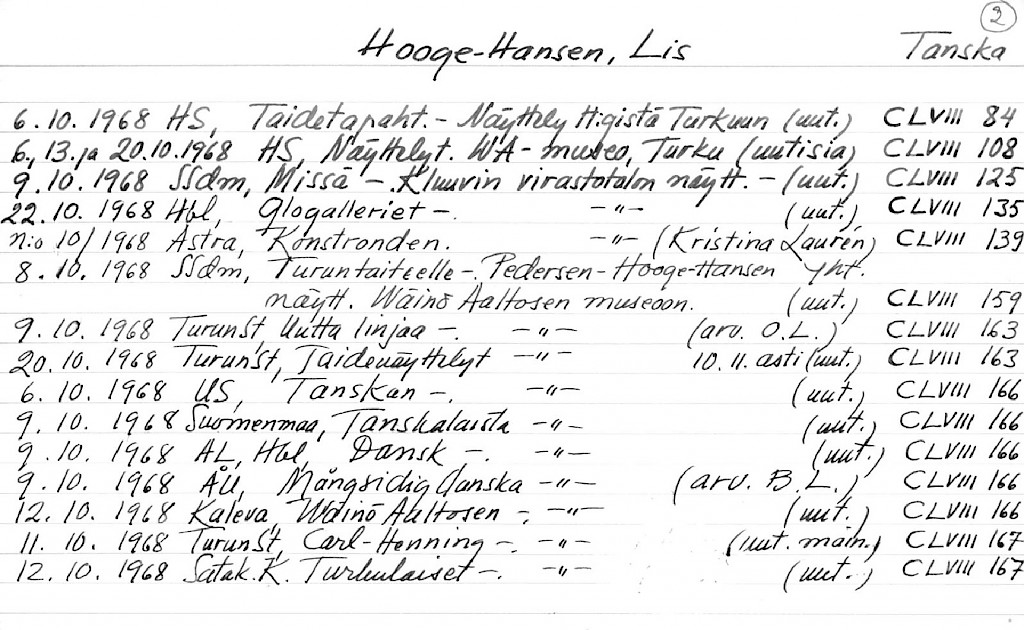 2
Hooge-Hansen, Lis Tanska
6.10.1968 HS, Taidetapaht. - Näyttely Hgistä Turkuun (uut.) CLVIII 84
6., 13. ja 20.10.1968 HS, Näyttelyt. WA-museo, Turku (uutisia) CLVIII 108
9.10.1968 SSdm, Missä -. Kluuvin virastotalon näytt. - (uut.) CLVIII 125
22.10.1968 Hbl, Glogalleriet -. -"- (uut.) CLVIII 135
n:o 10/1968 Astra, Konstronden. -"- (Kristina Laurén) CLVIII 139
8.10.1968 SSdm, Turun taiteelle -. Pedersen-Hooge-Hansen yht.
näytt. Wäinö Aaltosen museoon. (uut.) CLVIII 159
9.10.1968 TurunSt, Uutta linjaa -. -"- (arv. O.L.) CLVIII 163
20.10.1968 TurunSt, Taidenäyttelyt -"- 10.11. asti (uut.) CLVIII 163
6.10.1968 US, Tanskan -. -"- (uut.) CLVIII 166
9.10.1968 Suomenmaa, Tanskalaista -"- (uut.) CLVIII 166
9.10.1968 AL, Hbl, Dansk -. -"- (uut.) CLVIII 166
9.10.1968 ÅU, Mångsidig danska -"- (arv. B.L.) CLVIII 166
12.10.1968 Kaleva, Wäinö Aaltosen -. -"- (uut.) CLVIII 166
11.10.1968 TurunSt, Carl-Henning -. -"- (uut. main.) CLVIII 167
12.10.1968 Satak.K. Turkulaiset -. -"- (uut.) CLVIII 167